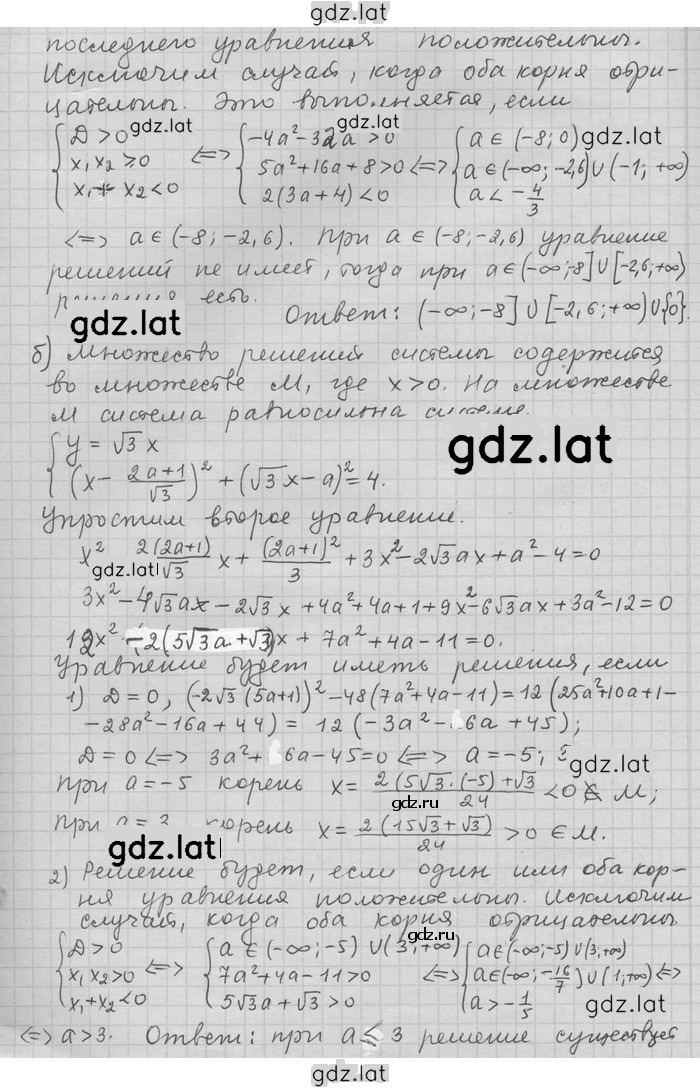 gdz.lat
последнего уравнения положительны.
Исключим случай, когда оба корня отри-
цательны. Это выполняется, если
{ D > 0 gdz.lat ⟺ { -4a² - 32a > 0 gdz.lat { a ∈ (-8; 0) gdz.lat
x₁x₂ ≥ 0 ⟺ 5a² + 16a + 8 > 0 ⟺ a ∈ (-∞; -2,6) ∪ (-1; +∞)
x₁ + x₂ < 0 2(3a + 4) < 0 a < -4/3
⟺ a ∈ (-8; -2,6). При a ∈ (-8; -2,6) уравнение
решений не имеет, тогда при a ∈ (-∞; -8] ∪ [-2,6; +∞)
есть.
gdz.lat Ответ: (-∞; -8] ∪ [-2,6; +∞) ∪ {0}.
б) Множество решений системы содержится
во множестве M, где x > 0. На множестве
M система равносильна система.
{ y = √3 x
(x - (2a+1)/√3)² + (√3 x - a)² = 4. gdz.lat
Упростим второе уравнение.
x² 2(2a+1)/√3 x + (2a+1)²/3 + 3x² - 2√3ax + a² - 4 = 0
gdz.lat
3x² - 4√3ax - 2√3x + 4a² + 4a + 1 + 9x² - 6√3ax + 3a² - 12 = 0
12x² - 2(5√3a + √3)x + 7a² + 4a - 11 = 0.
Уравнение будет иметь решения, если
1) D = 0, (-2√3(5a+1))² - 48(7a² + 4a - 11) = 12(25a² + 10a + 1 -
- 28a² - 16a + 44) = 12(-3a² - 6a + 45);
D = 0 ⟺ 3a² + 6a - 45 = 0 ⟺ a = -5; 3 gdz.lat
При a = -5 корень x = 2(5√3·(-5) + √3)/24 < 0 ∉ M;
gdz.ru
При a = 3 корень x = 2(15√3 + √3)/24 > 0 ∈ M.
gdz.lat
2) Решение будет, если один или оба кор-
ня уравнения положительны. Исключим
случай, когда оба корня отрицательны
{ D > 0 ⟺ { a ∈ (-∞; -5) ∪ (3; +∞) ⟺ { a ∈ (-∞; -5) ∪ (3; +∞)
x₁x₂ > 0 7a² + 4a - 11 > 0 a ∈ (-∞; -16/7) ∪ (1; +∞) ⟺
x₁ + x₂ < 0 5√3a + √3 > 0 a > -1/5 gdz.lat
gdz.ru
⟺ a > 3. Ответ: при a ≤ 3 решение существует
gdz.lat